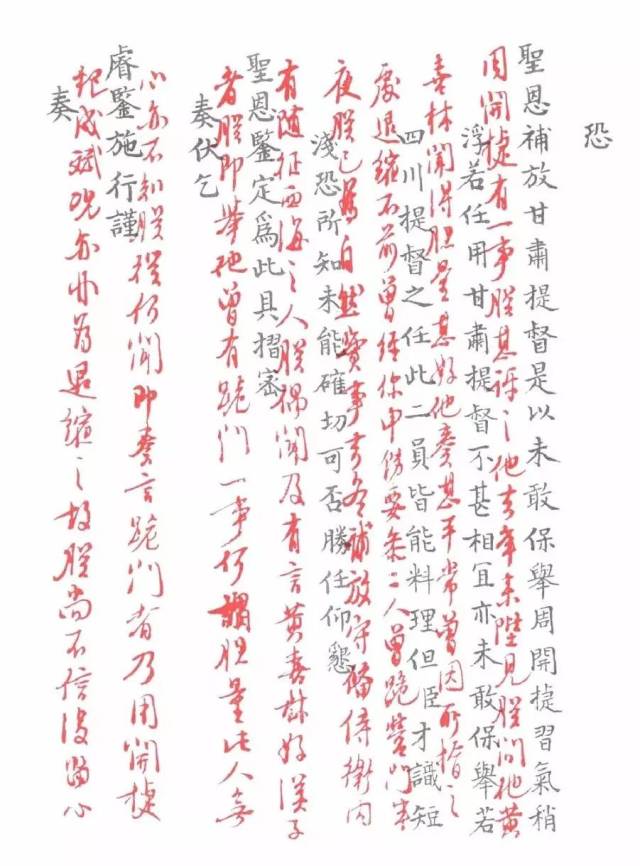 恐
聖恩補放甘肅提督是以未敢保舉周開捷習氣稍
浮若任用甘肅提督不甚相冝亦未敢保舉若
四川提督之任此二員皆能料理但臣才識短
淺恐所知未能確切可否勝任仰懇
聖恩鑒定爲此具摺密
奏伏乞
睿鑒施行謹
奏
周開捷有一事朕甚訝之他去年來陛見朕問他黃
喜林聞得胆量甚好他奏甚平常曾因所指之
處退縮不前曾經你中傷要参二人曾跪營門半
夜朕已為自然實事去冬補放守備侍衛内
有隨征西海之人朕偶聞及有言黃喜林好漢子
者朕即舉他曾有跪門一事何謂胆量此人云
小亦不知朕從何聞即奏言跪門者乃周開捷
紀成斌亦非為退縮之故朕尚不信後留心